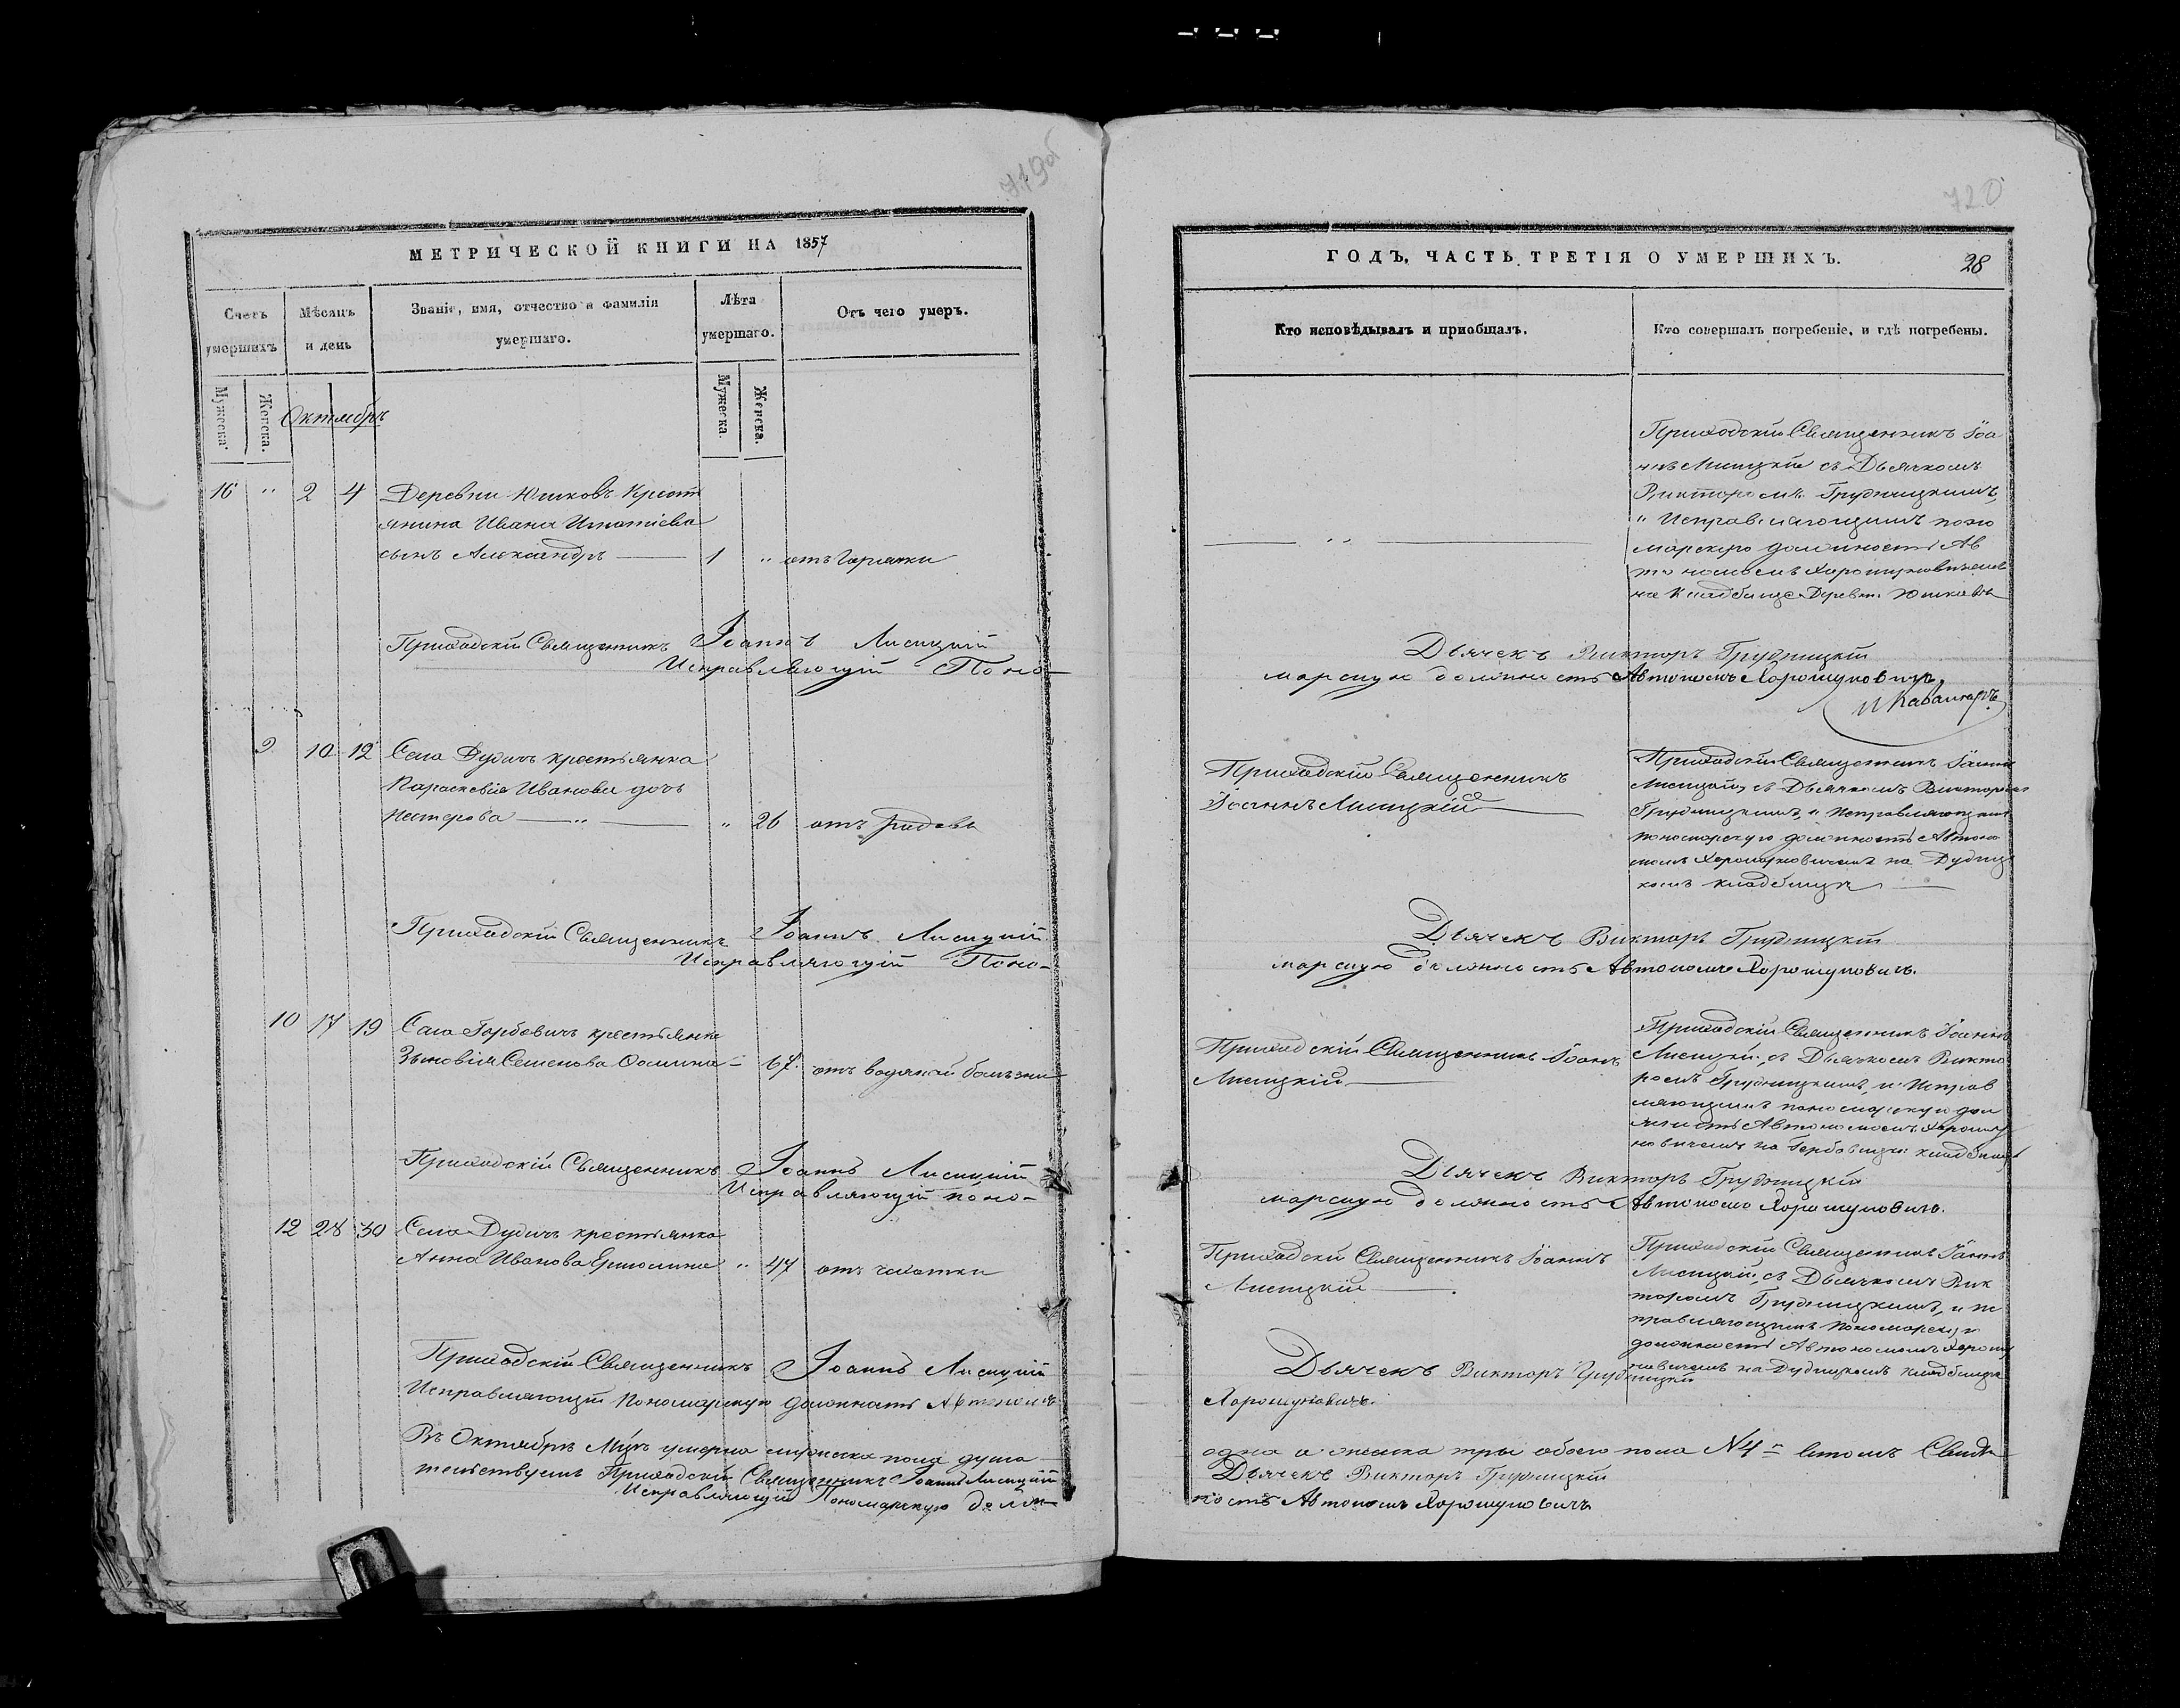 719об
МЕТРИЧЕСКОЙ КНИГИ НА 1857
Счетъ умершихъ
Мѣсяцъ и день
Званіе, имя, отчество и фамилія умершаго.
Лѣта умершаго.
Отъ чего умеръ.
Мужеска.
Женска.
Октябрь
Мужеска.
Женска.
16 " 2 4 Деревни Юшковъ Крестъ
янина Ивана Игнатіева
сынъ Александръ — 1 " отъ Горячки
Приходскій Священникъ Іоаннъ Лисицкій
Исправляющій Поно-
9 10 12 Села Дудичъ крестьянка
Параскевія Иванова дочь
Нестерова — " — " 26 отъ родовъ
Приходскій Священникъ Іоаннъ Лисицкій
Исправляющій Поно-
10 17 19 Села Горбовичъ крестьянка
Зѣновія Семенова 67 отъ водяной болѣзни
Приходскій Священникъ Іоаннъ Лисицкій
Исправляющій поно-
12 28 30 Села Дудичъ крестьянка
Анна Иванова " 47 отъ чахотки
Приходскій Священникъ Іоаннъ Лисицкій
Исправляющій Пономарскую должность Автономъ
Въ Октябрѣ М-цѣ умерло мужеска пола душа
тельствуемъ Приходскій Священникъ Іоаннъ Лисицкій
Исправляющій Пономарскую долж-
720
ГОДЪ, ЧАСТЬ ТРЕТІЯ О УМЕРШИХЪ.
28
Кто исповѣдывалъ и приобщалъ.
Кто совершалъ погребеніе, и гдѣ погребены.
— " —
Приходскій Священникъ Іоа
ннъ Лисицкій съ Дьячкомъ
Викторомъ Грудницкимъ,
и Исправляющимъ поно
марскую должность Ав
тономомъ Хорошуновичемъ
на Кладбищѣ Деревни Юшковъ
Дьячекъ Викторъ Грудницкій
марскую должность Автономъ Хорошуновичъ.
Приходскій Священникъ
Іоаннъ Лисицкій —
Приходскій Священникъ Іоаннъ
Лисицкій, съ Дьячкомъ Викторомъ
Грудницкимъ, и Исправляющимъ
пономарскую должность Автоно
момъ Хорошуновичемъ на Дудиц
комъ кладбищѣ —
Дьячекъ Викторъ Грудницкій
марскую должность Автономъ Хорошуновичъ.
Приходскій Священникъ Іоаннъ
Лисицкій —
Приходскій Священникъ Іоаннъ
Лисицкій, съ Дьячкомъ Викто
ромъ Грудницкимъ, и Исправ
ляющимъ пономарскую дол
жность Автономомъ Хорошу
новичемъ на кладбищѣ
Дьячекъ Викторъ Грудницкій
марскую должность Автономъ Хорошуновичъ.
Приходскій Священникъ Іоаннъ
Лисицкій —
Приходскій Священникъ Іоаннъ
Лисицкій, съ Дьячкомъ Вик
торомъ Грудницкимъ, и ис
правляющимъ пономарскую
должность Автономомъ Хорошу
новичемъ на Дудицкомъ кладбищѣ
Дьячекъ Викторъ Грудницкій
Хорошуновичъ.
одна а женска три обоего пола №4 въ томъ Свидѣ
Дьячекъ Викторъ Грудницкій
ность Автономъ Хорошуновичъ